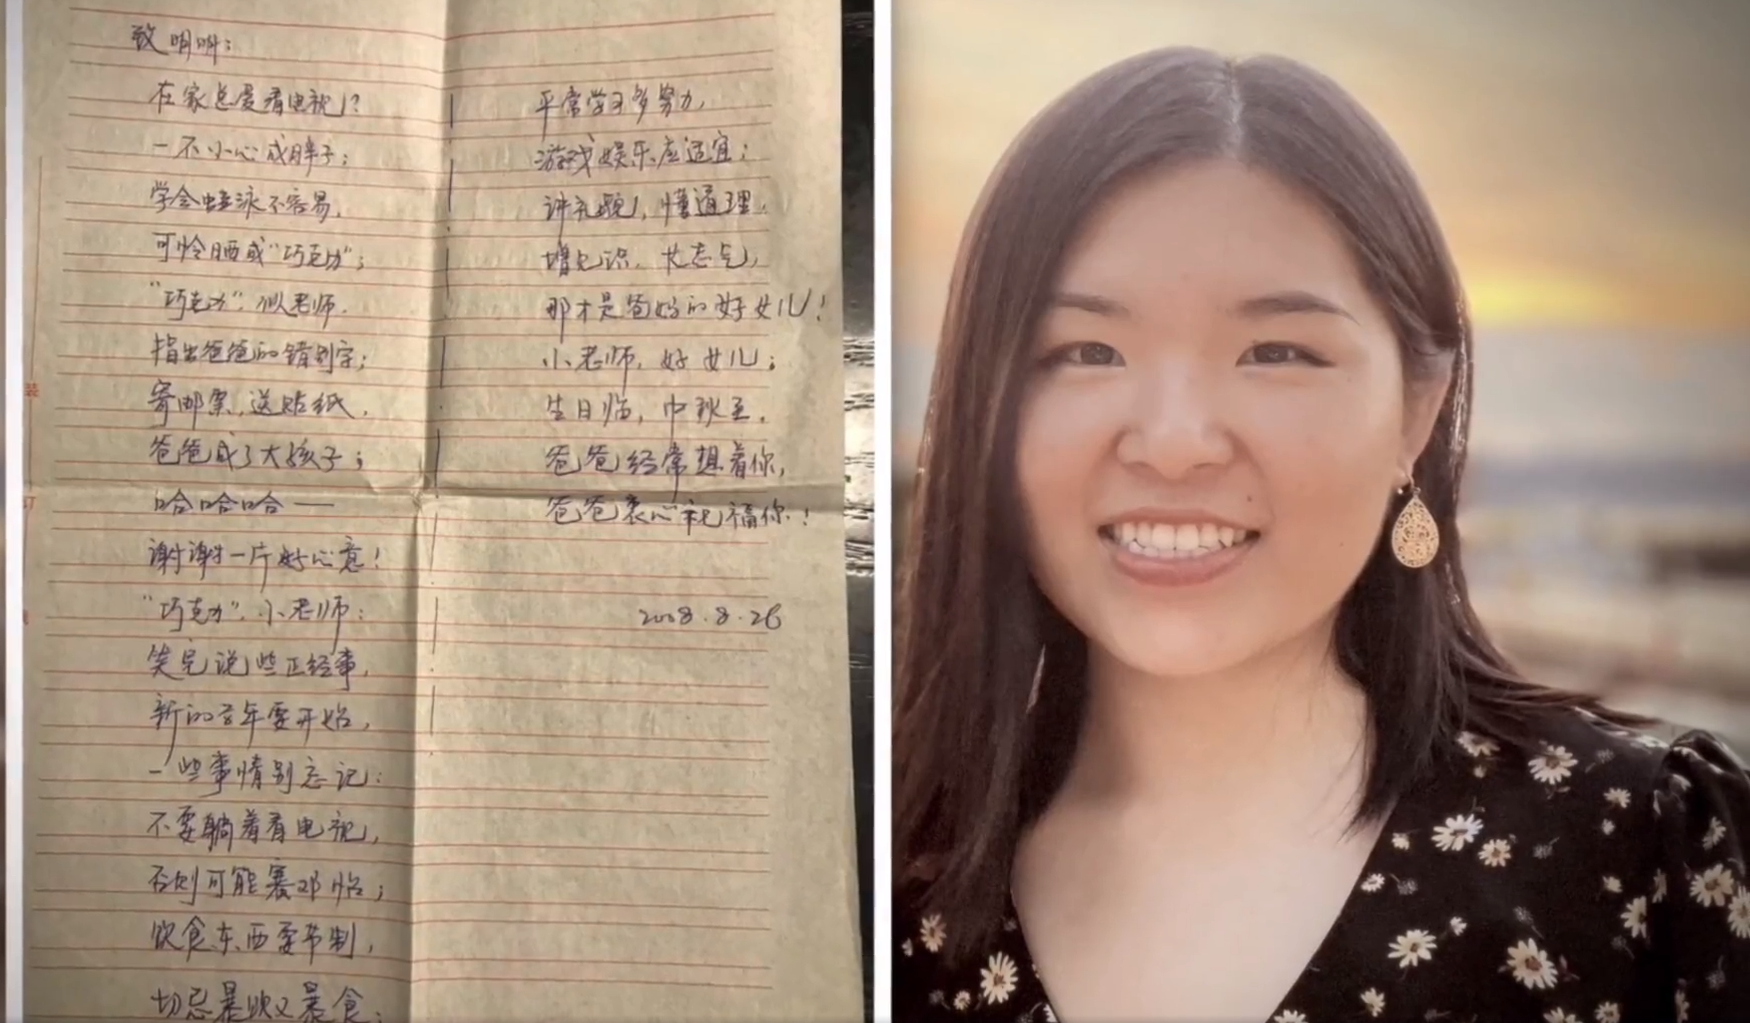 致明明：
在家总爱看电视？
一不小心成胖子；
学会蛙泳不容易，
可怜晒成“巧克力”；
“巧克力”，似老师，
指出爸爸的错别字；
寄邮票，送贴纸，
爸爸成了大孩子；
哈哈哈——
谢谢一片好心意！
“巧克力”，小老师：
笑完说些正经事，
新的学年要开始，
一些事情别忘记：
不要躺着看电视，
否则可能赛邓怡；
饮食东西要节制，
切忌暴饮又暴食；
平常学习多努力，
游戏娱乐应适宜；
讲礼貌，懂道理，
增见识，长志气，
那才是爸妈的好女儿！
小老师，好女儿；
生日临，中秋至，
爸爸经常想着你，
爸爸衷心祝福你！
2008.8.26
装
订